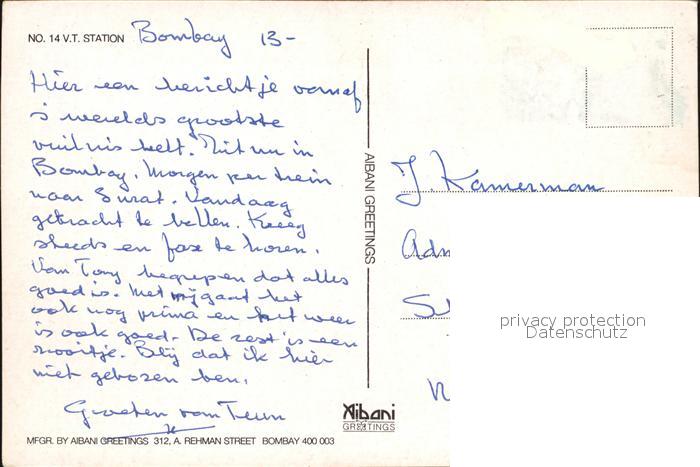 NO. 14 V.T. STATION Bombay 13-
Hier een berichtje vanaf
's werelds grootste
vuilnis belt. Zit nu in
Bombay. Morgen per trein
naar Surat. Vandaag
getracht te bellen. Kreeg
steeds en fax te horen.
Van Tony begrepen dat alles
goed is. Met mij gaat het
ook nog prima en het weer
is ook goed. De rest is een
zooitje. Blij dat ik hier
niet geboren ben.
Groeten van Teun
MFGR. BY AIBANI GREETINGS 312, A. REHMAN STREET BOMBAY 400 003
AIBANI GREETINGS
Aibani
GREETINGS
J. Kamerman
privacy protection
Datenschutz